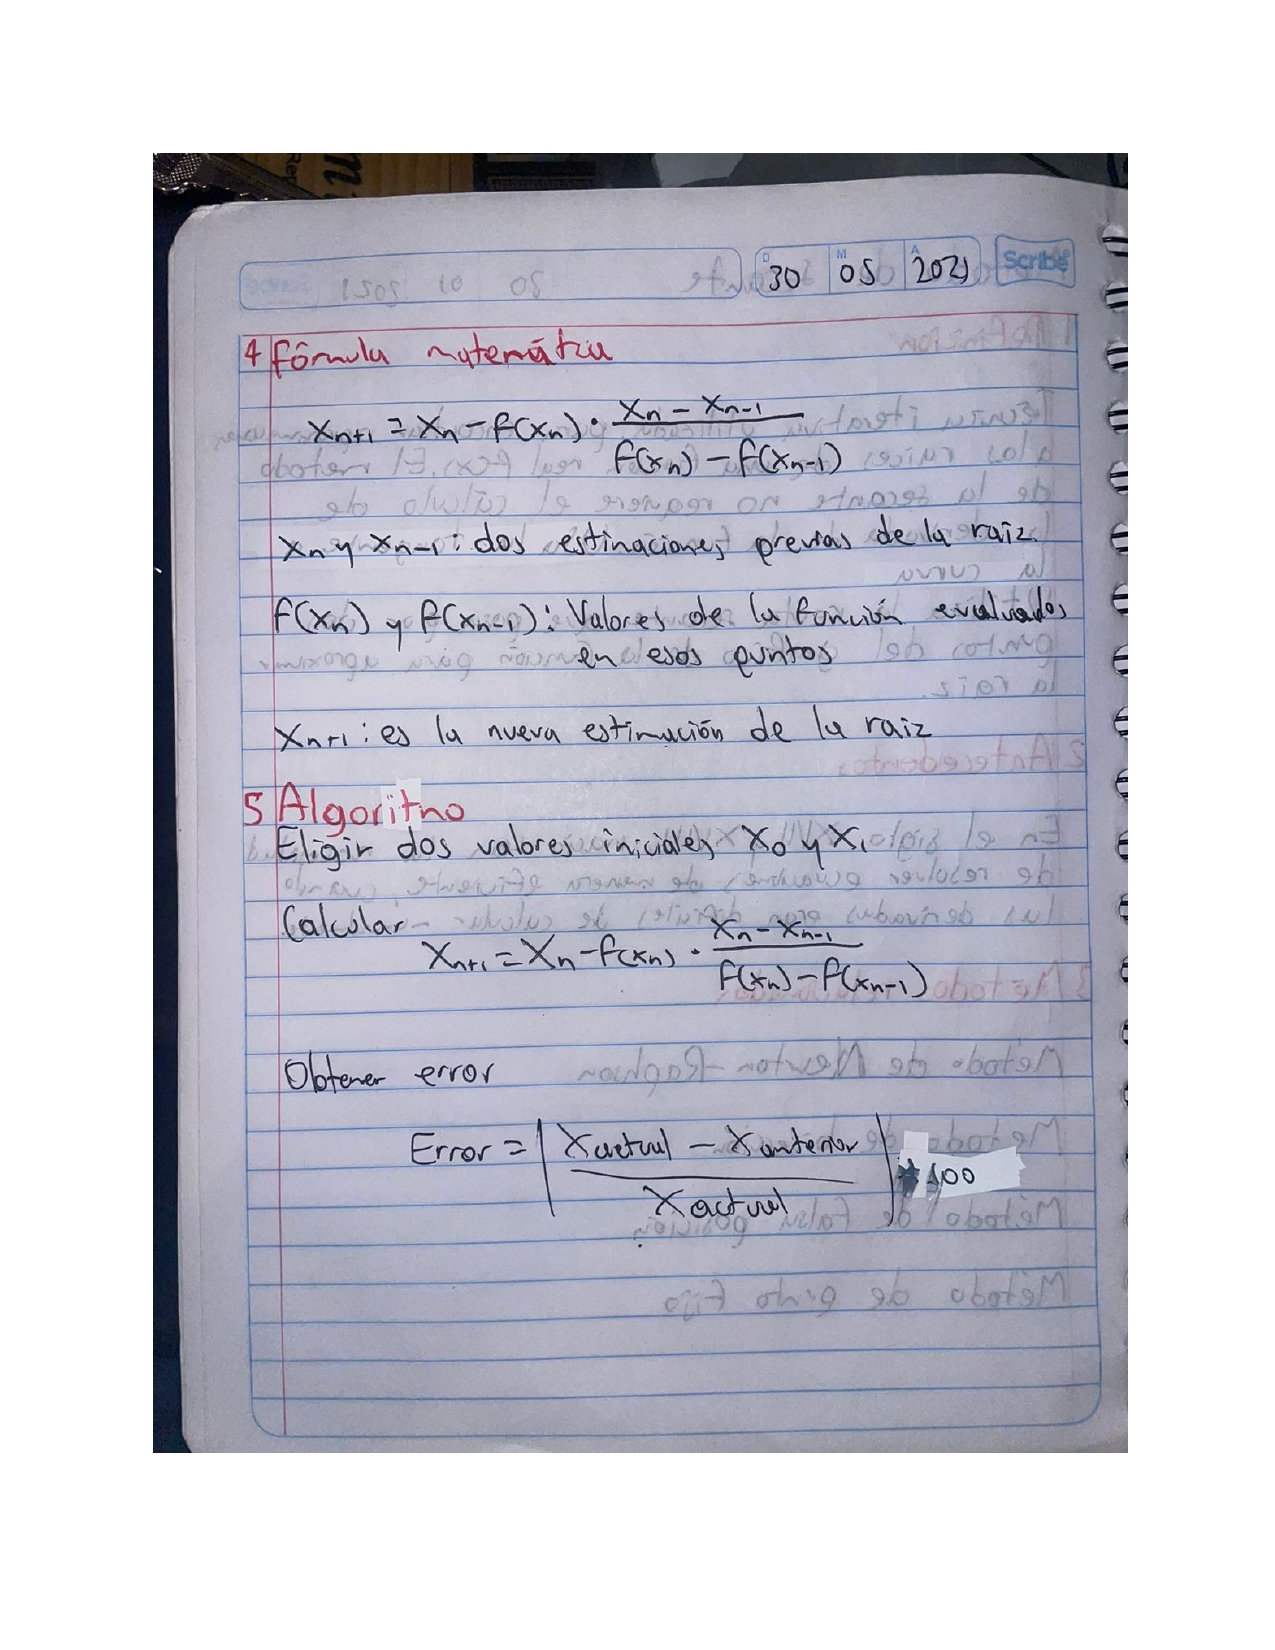 30 05 2021 Scribe
4 Fórmula matemática
Xn+1 = Xn - f(Xn) · (Xn - Xn-1) / (f(xn) - f(xn-1))
Xn y Xn-1: dos estimaciones previas de la raiz.
f(xn) y f(xn-1): Valores de la función evaluados
en esos puntos
Xn+1: es la nueva estimación de la raiz
5 Algoritmo
Eligir dos valores iniciales X0 y X1
Calcular
Xn+1 = Xn - f(xn) · (Xn - Xn-1) / (f(xn) - f(xn-1))
Obtener error
Error = | (Xactual - Xanterior) / Xactual | * 100